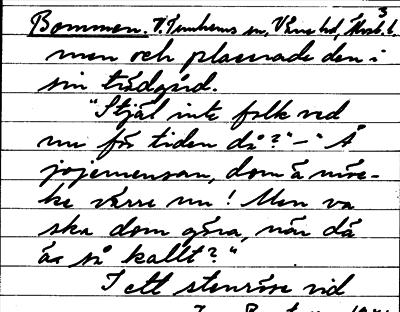 Bommen. V. Tunhems sn, Väne hd, 3
men och placerade den i
sin trädgård.
"Stjäl inte folk ved
nu för tiden då?" — "Å
jojemensan, dom ä möe-
ke värre nu! Men va
ska dom göra, när dä
ä så kallt?"
I ett stenröse vid